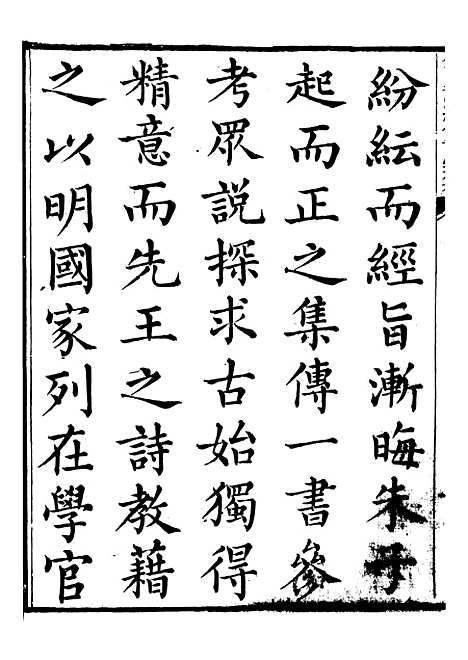 紛紜而經旨漸晦朱子
起而正之集傳一書參
考眾說探求古始獨得
精意而先王之詩教藉
之以明國家列在學官